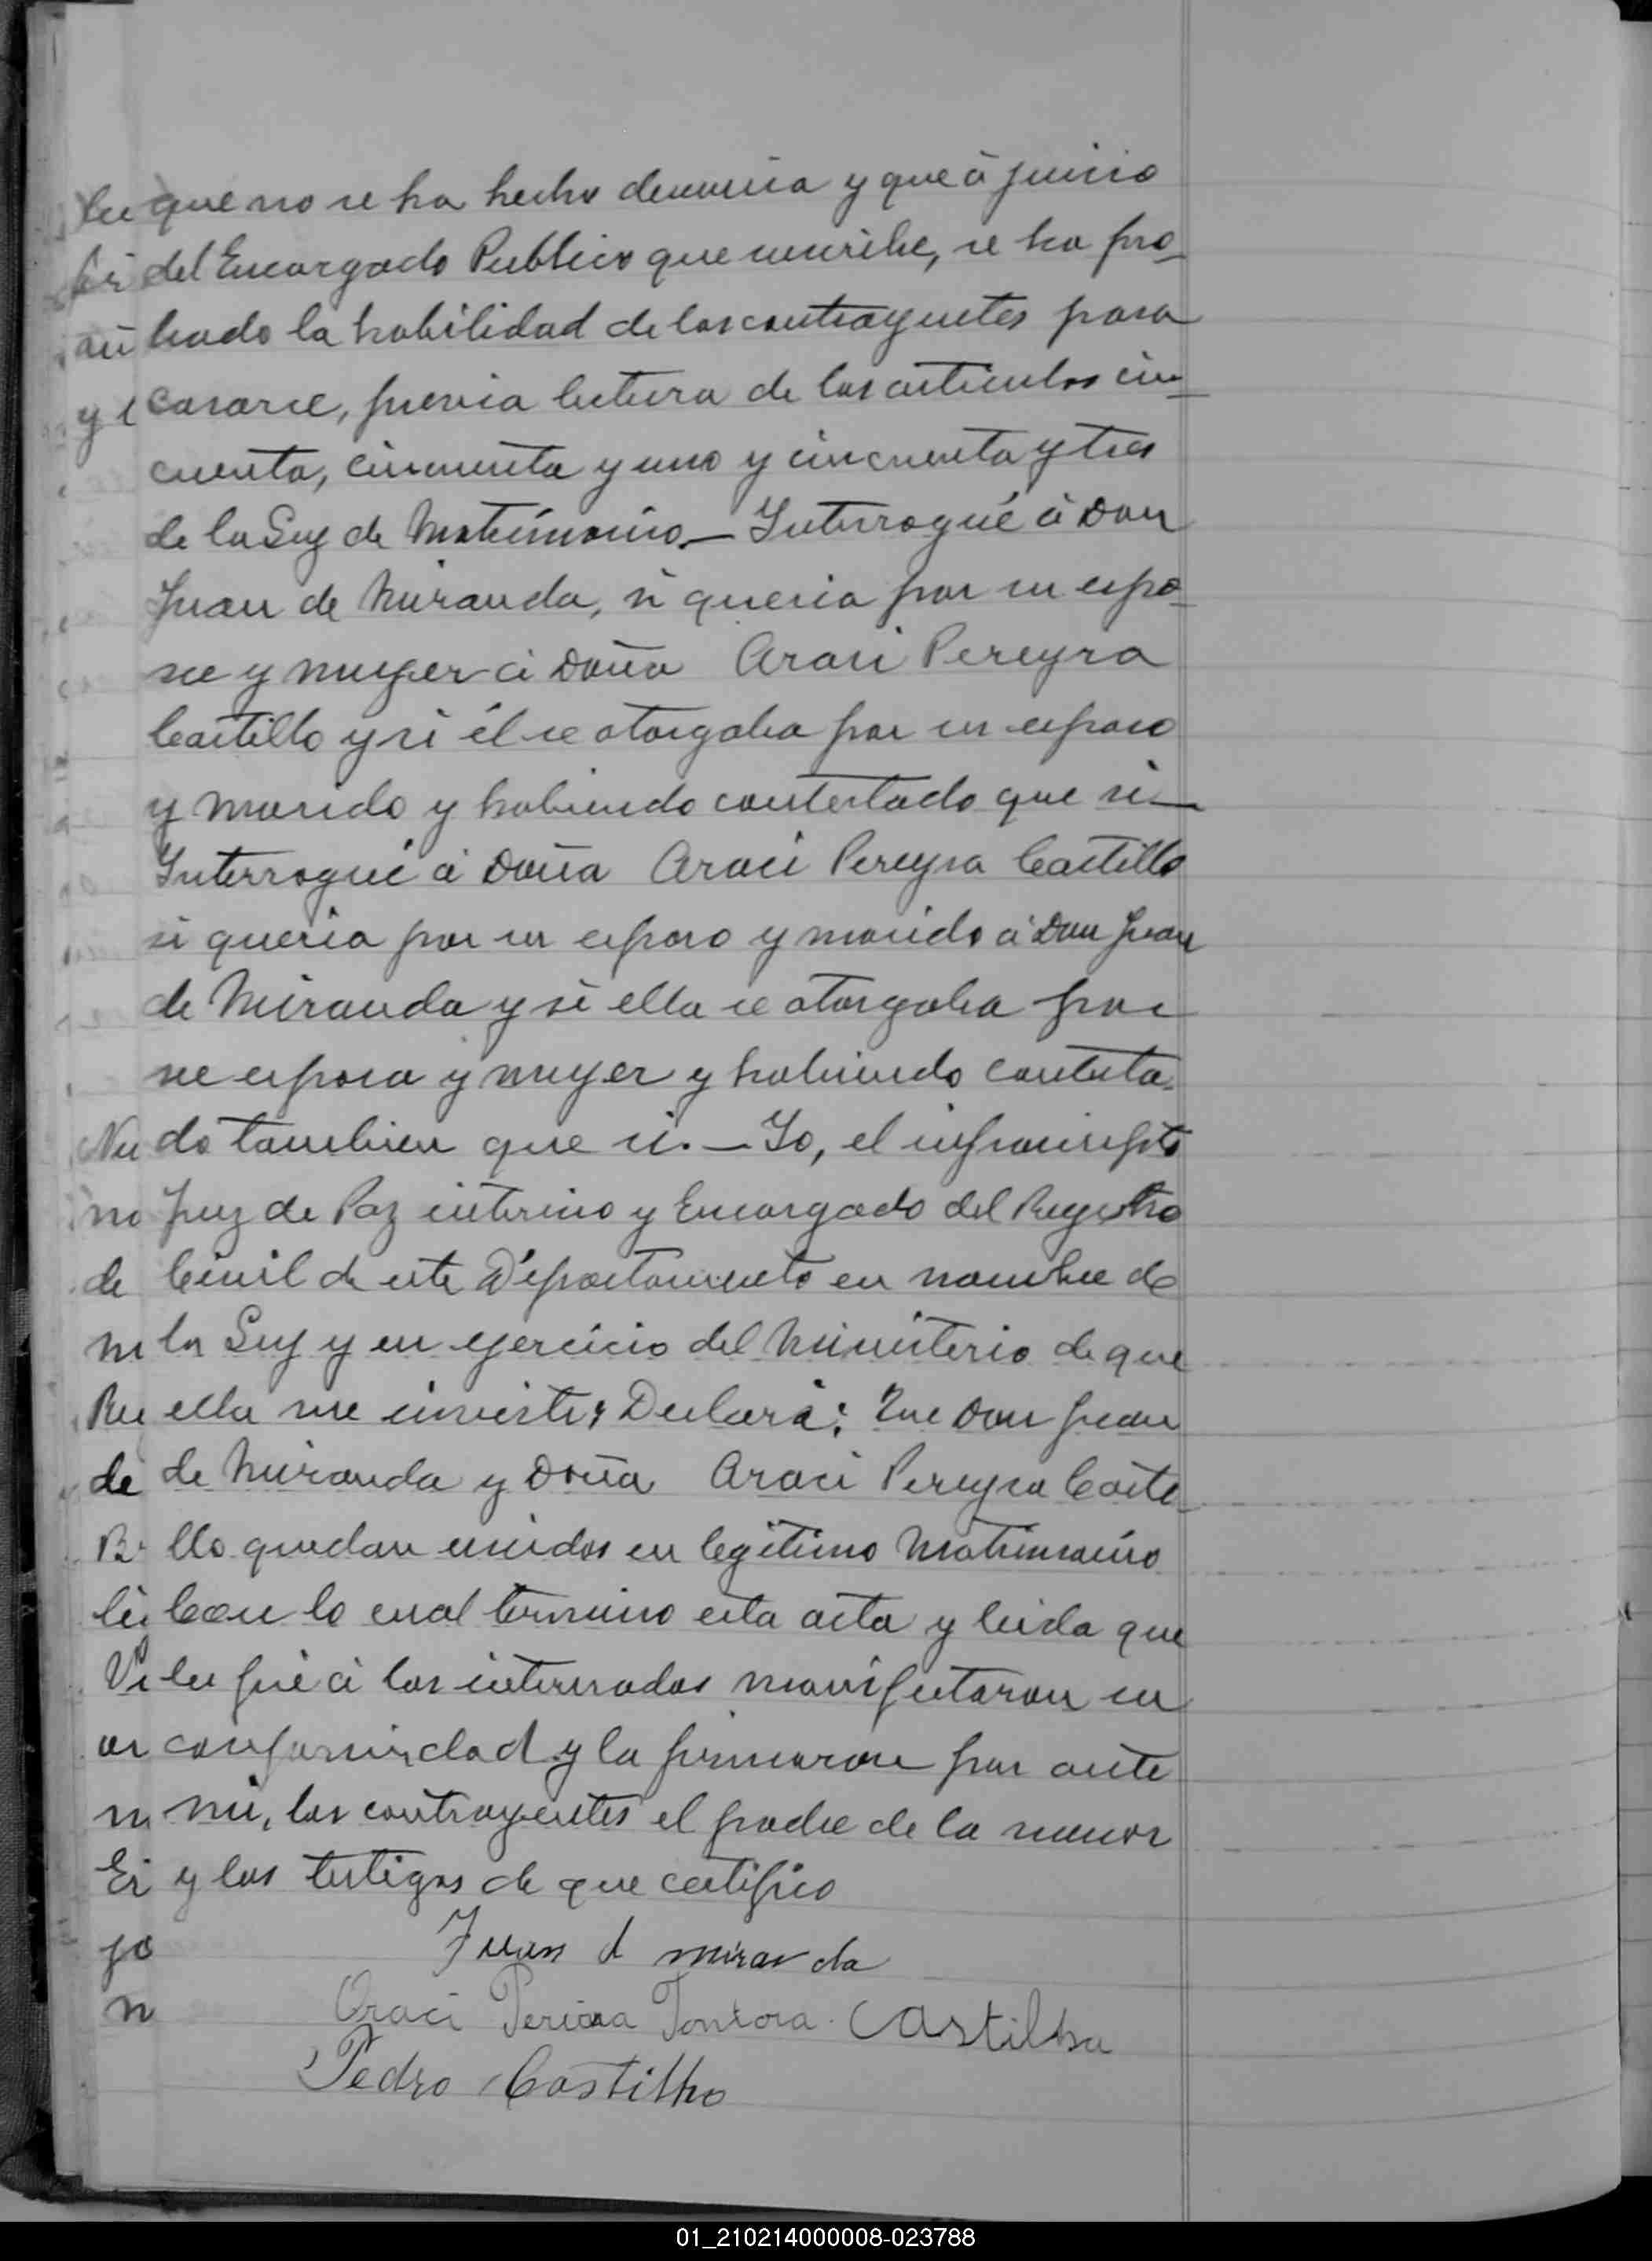 que no se ha hecho denuncia y que à juicio
del Encargado Publico que suscribe, se ha pro-
bado la habilidad de los contrayentes para
casarse, previa lectura de los articulos cin-
cuenta, cincuenta y uno y cincuenta y tres
de la Ley de Matrimonio.— Interrogué à Don
Juan de Miranda, si queria por su espo-
sa y muger à Doña Araci Pereyra
Castillo y si él se otorgaba por su esposo
y marido y habiendo contestado que si—
Interrogué à Doña Araci Pereyra Castillo
si queria por su esposo y marido à Don Juan
de Miranda y si ella se otorgaba por
su esposa y muger y habiendo contesta-
do tambien que si.— Yo, el infrascripto
Juez de Paz interino y Encargado del Registro
Civil de este Departamento en nombre de
la Ley y en ejercicio del Ministerio de que
ella me inviste; Declara: Que Don Juan
de Miranda y Doña Araci Pereyra Casti-
llo quedan unidos en legitimo Matrimonio
Con lo cual termino esta acta y leida que
les fué à los interesados manifestaron su
conformidad y la firmaron por ante
mi, los contrayentes el padre de la menor
y los testigos de que certifico
Juan d miranda
Oraci Pereira Castilha
Pedro Castilho
Nu
no
de
de
jo
n
01_210214000008-023788